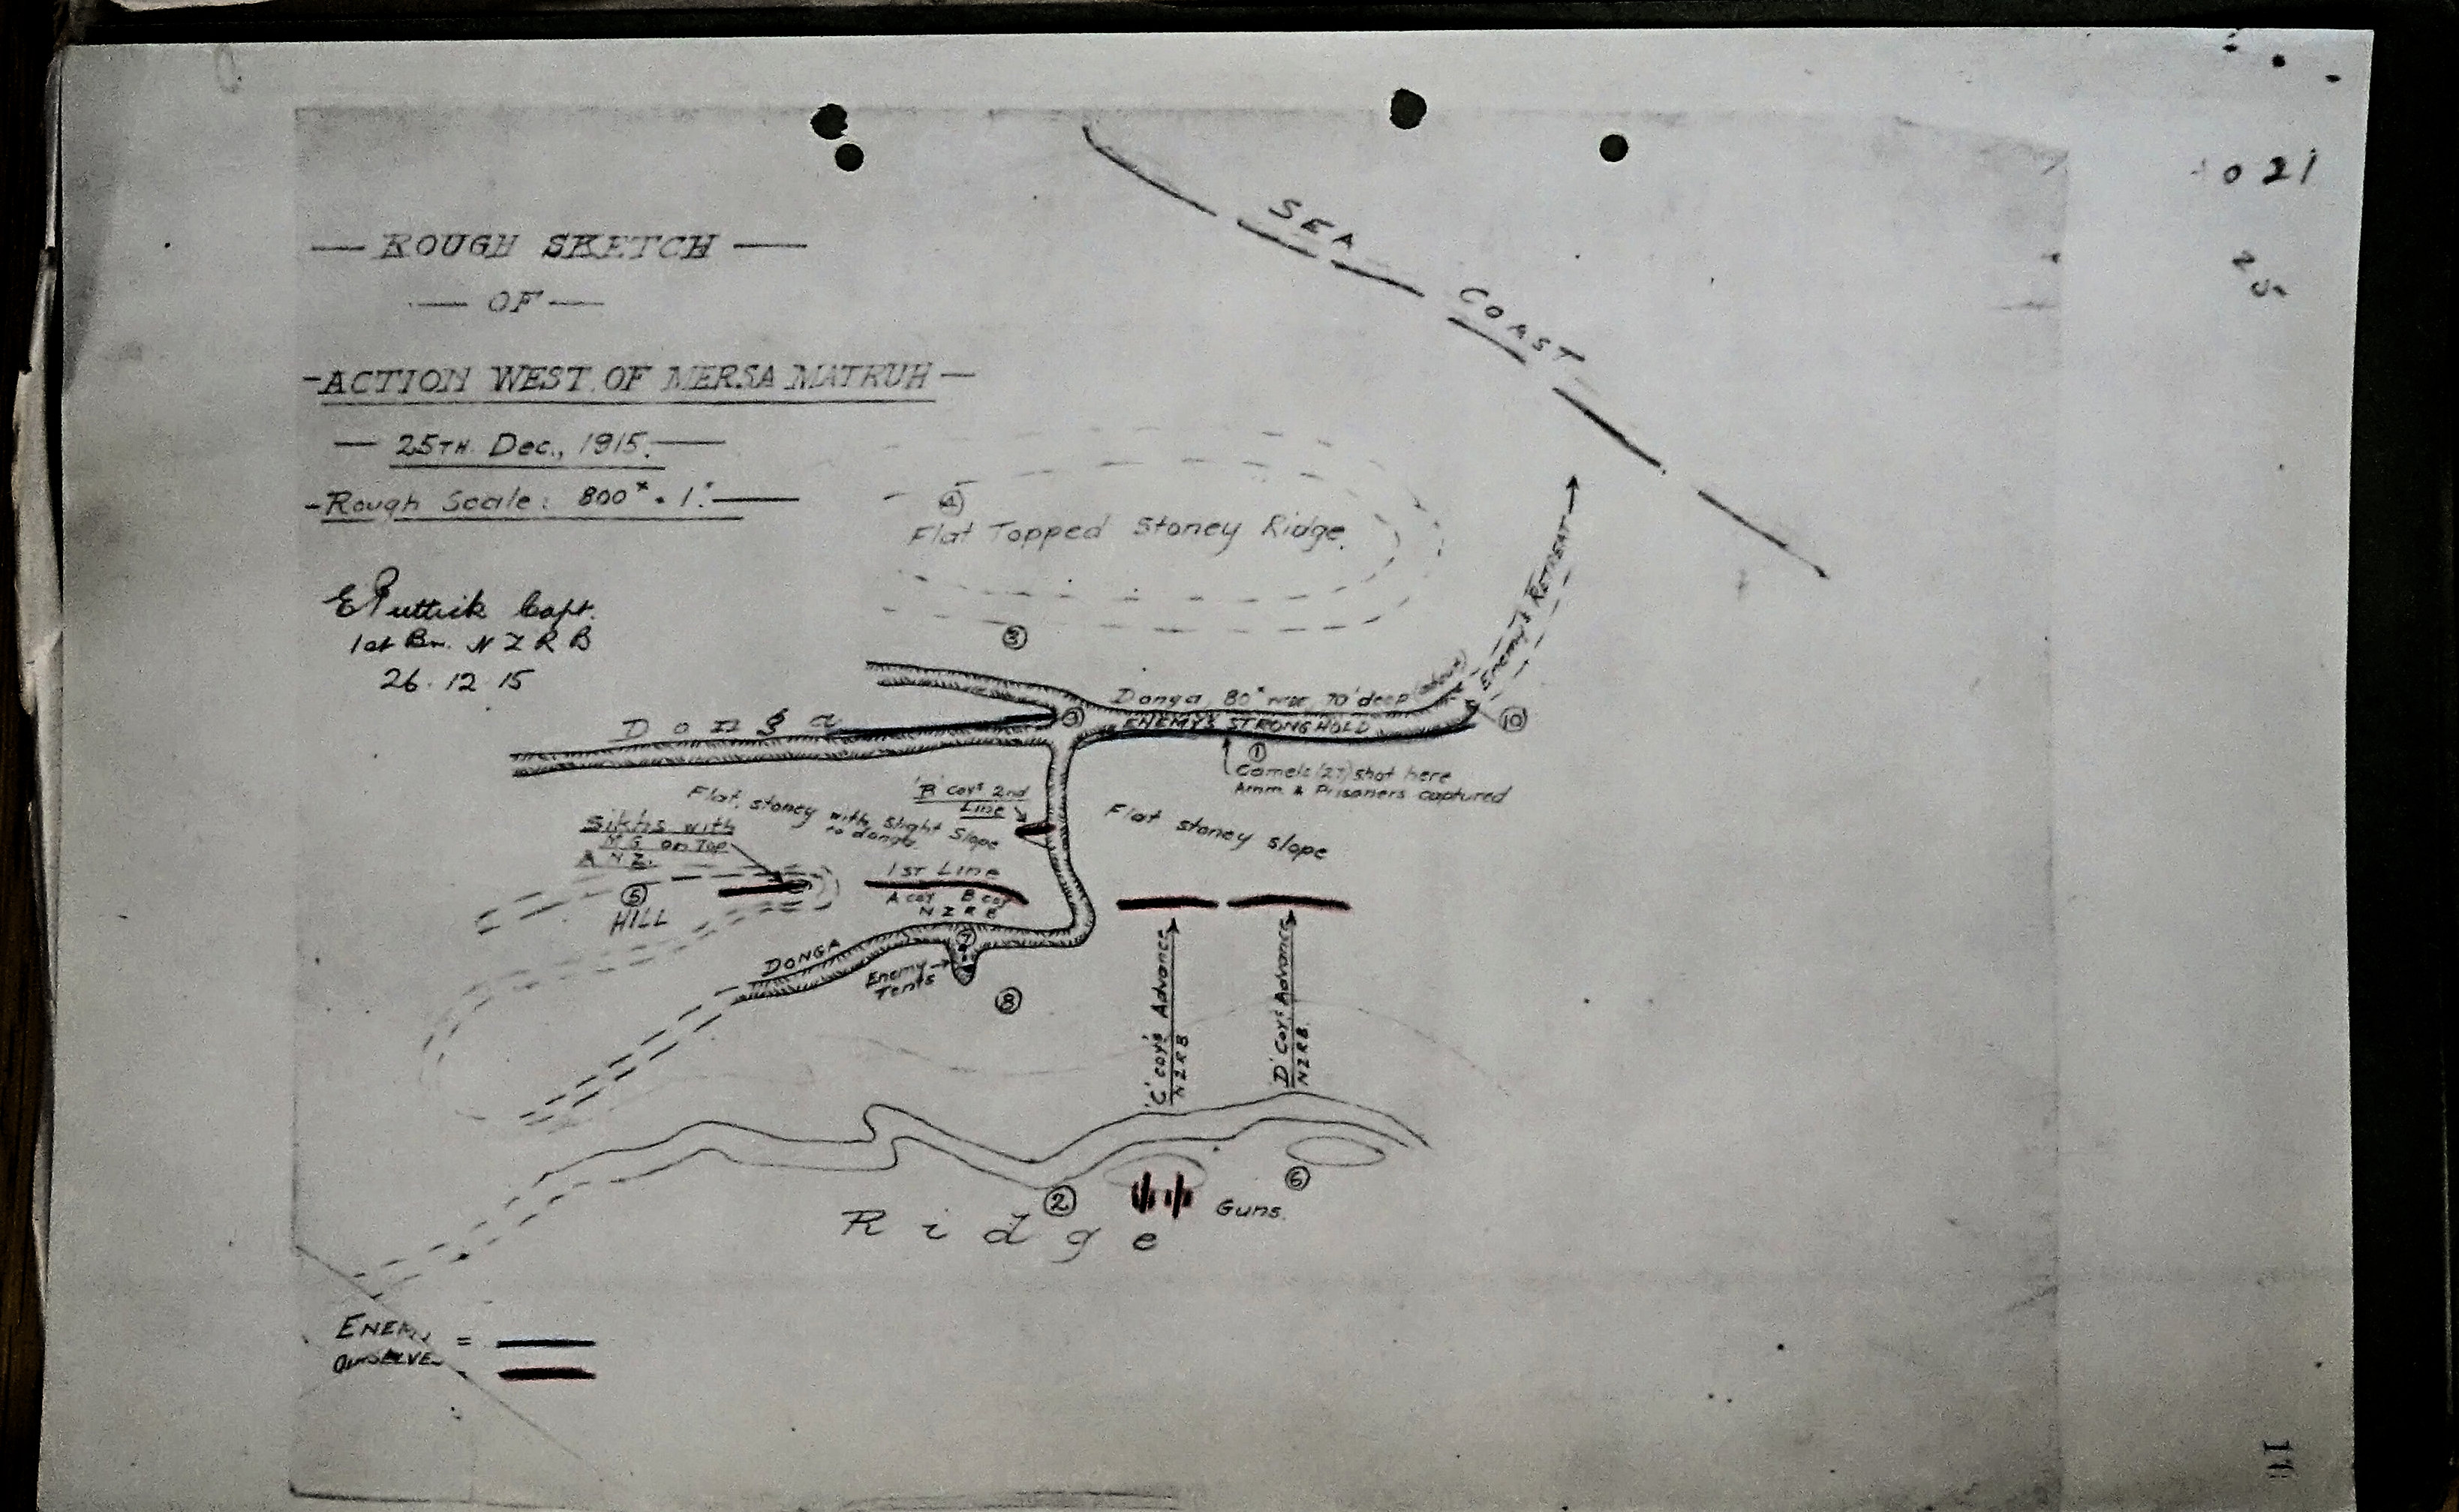 021
25
— ROUGH SKETCH —
— OF —
- ACTION WEST OF MERSA MATRUH —
— 25TH Dec., 1915. —
- Rough Scale: 800ˣ = 1". —
E Puttick Capt.
1st Bn. N Z R B
26.12.15
SEA COAST
④
Flat Topped Stoney Ridge.
③
Enemy's RETREAT
Donga 80ˣ wide 70' deep (about)
Donga
⑨
ENEMY'S STRONGHOLD
⑩
①
Camels (27) shot here
Amm. & Prisoners captured
'B' Coy's 2nd
Line
Flat, stoney with slight Slope
to donga
Flat stoney slope
Sikhs with
M G on Top
& N Z.
⑤
HILL
1ST LINE
A coy B coy
N Z R B
DONGA
⑦
Enemy
Tents
⑧
'C' coy's Advance
N Z R B
'D' Coy's Advance
N Z R B
②
⑥
Guns.
Ridge
ENEMY =
OURSELVES